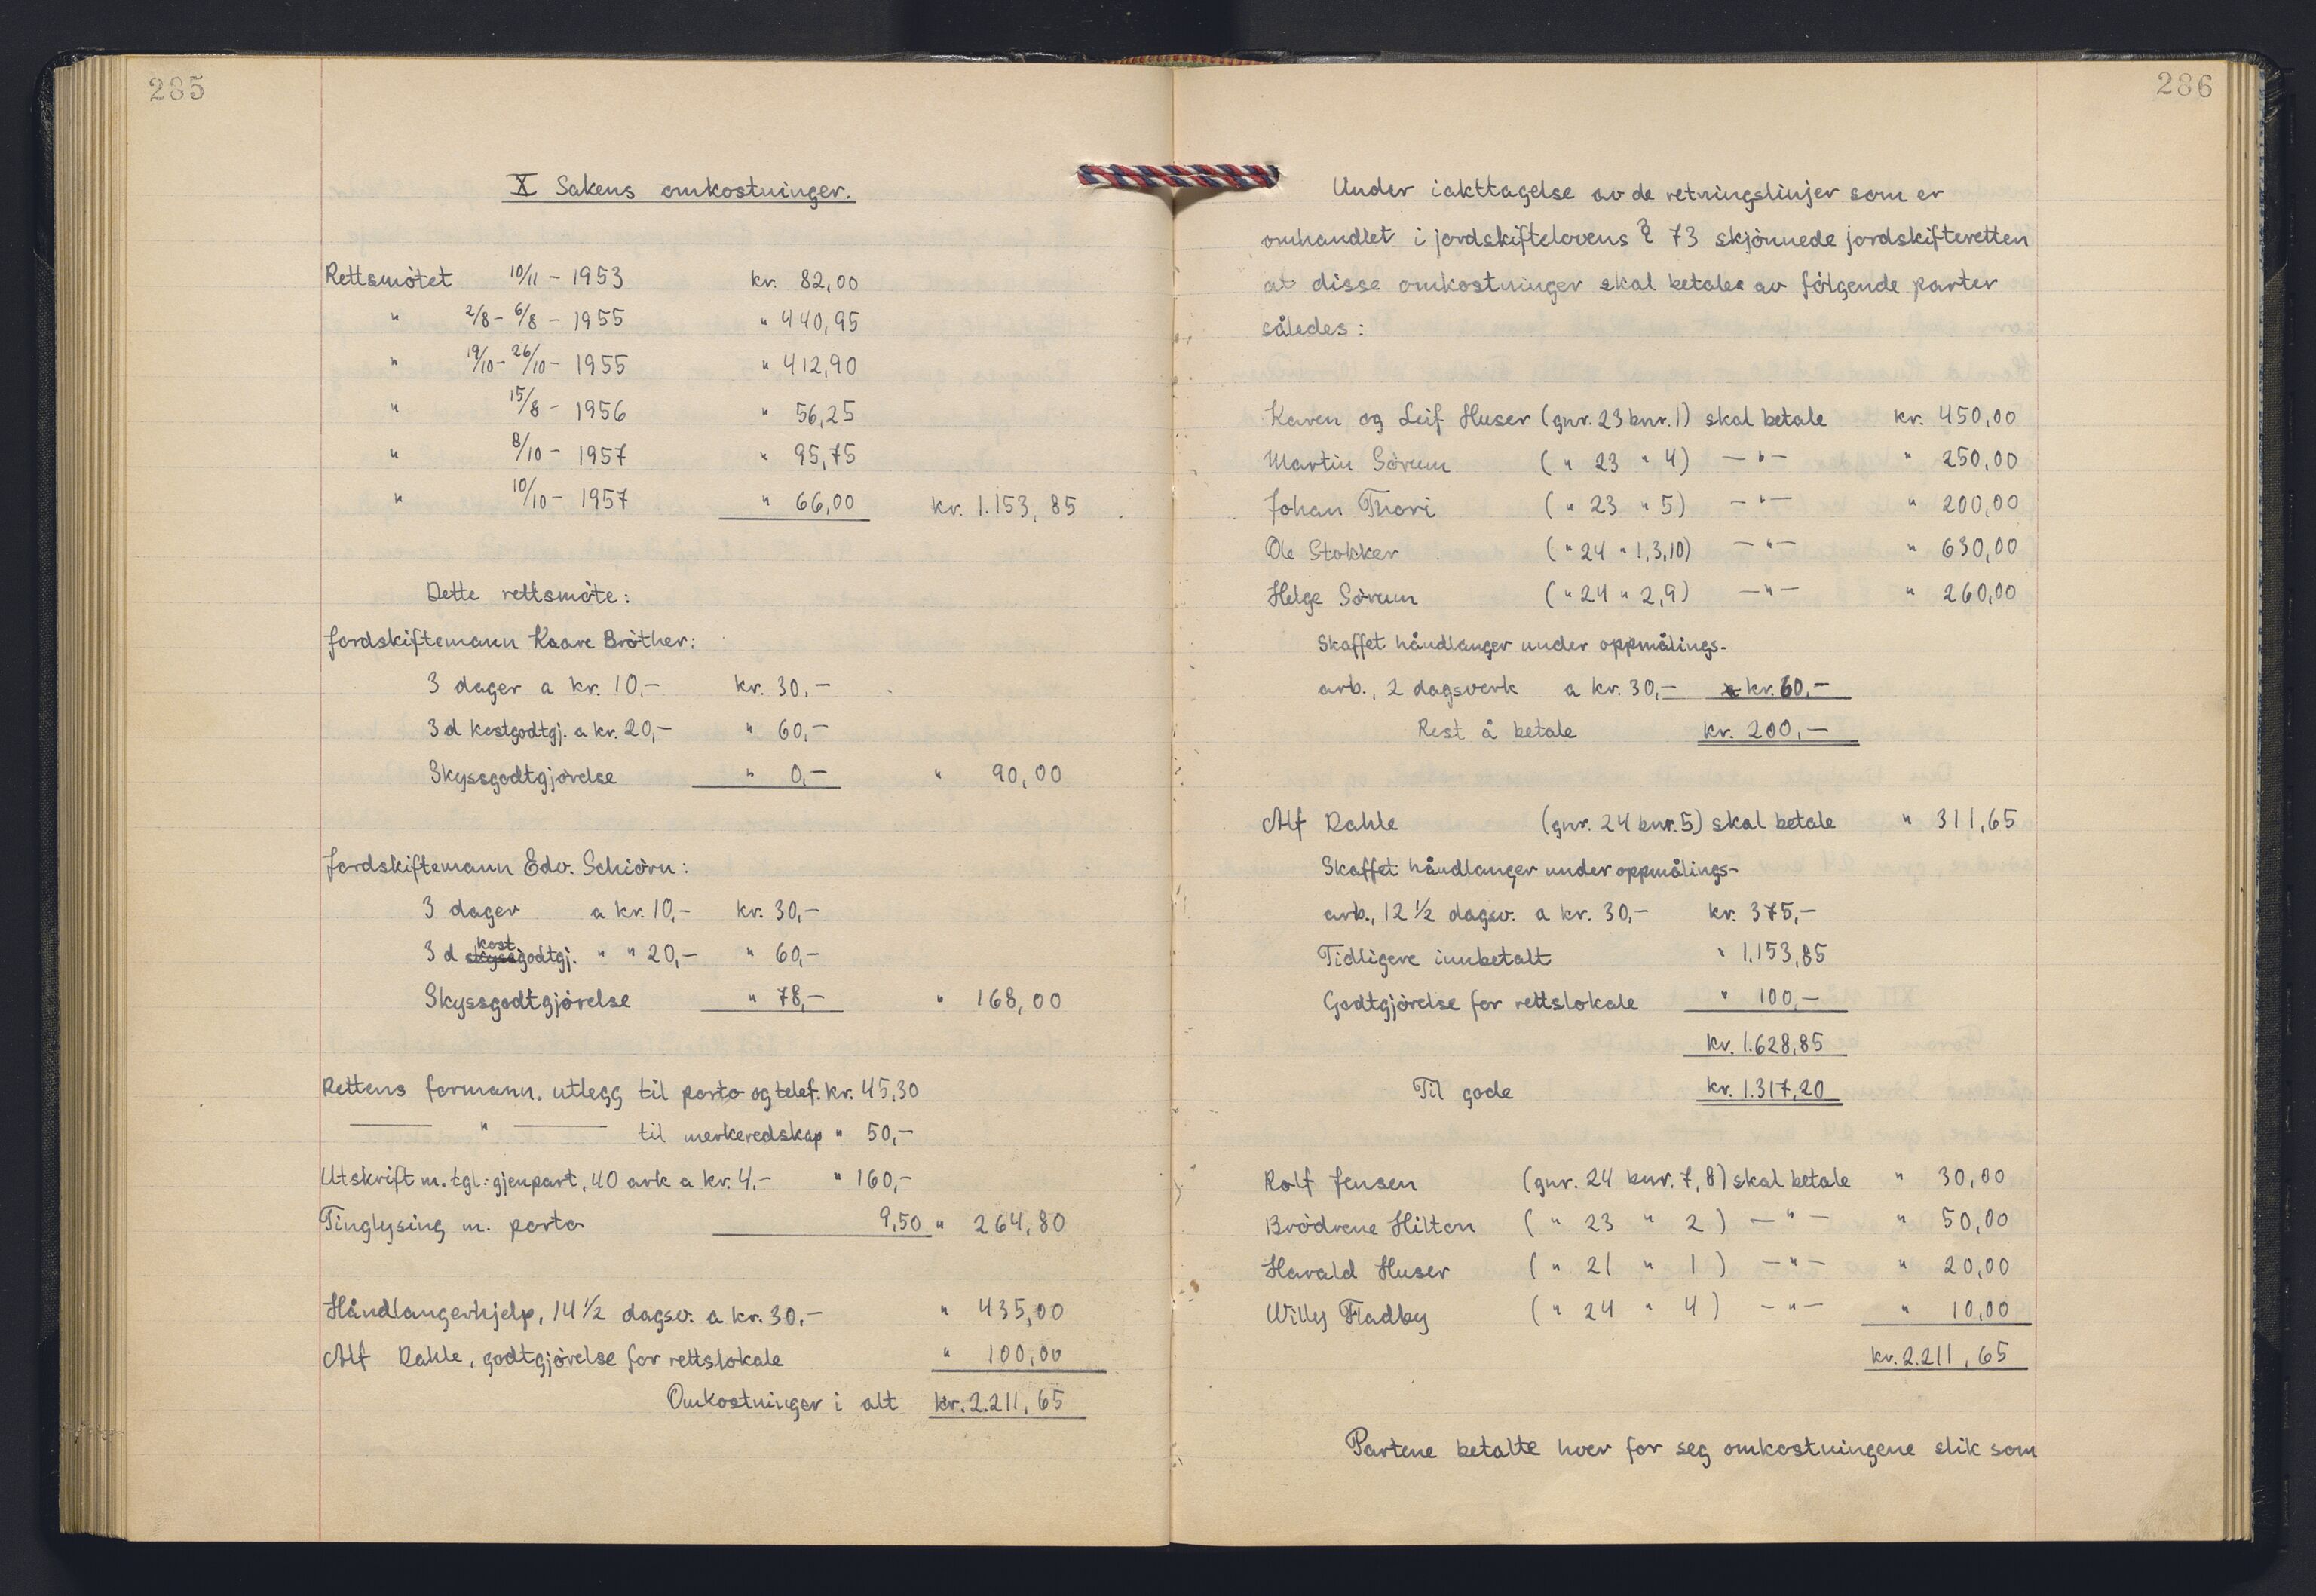 285
X Sakens omkostninger.
Rettsmötet 10/11 - 1953 kr. 82,00
" 2/8 - 6/8 - 1955 " 440,95
" 19/10 - 26/10 - 1955 " 412,90
" 15/8 - 1956 " 56,25
" 8/10 - 1957 " 95,75
" 10/10 - 1957 " 66,00 kr. 1.153,85
Dette rettsmöte:
Jordskiftemann Kaare Bröther:
3 dager a kr. 10,- kr. 30,-
3 d kostgodtgj. a kr. 20,- " 60,-
Skyssgodtgjörelse " 0,- " 90,00
Jordskiftemann Edv. Schiörn:
3 dager a kr. 10,- kr. 30,-
3 d skyss kost godtgj. " " 20,- " 60,-
Skyssgodtgjörelse " 78,- " 168,00
Rettens formann. utlegg til porto og telef. kr. 45,30
— " — til merkeredskap " 50,-
Utskrift m. tgl.: gjenpart, 40 ark a kr. 4,- " 160,-
Tinglysing m. porto 9,50 " 264,80
Håndlangerhjelp, 14 1/2 dagsv. a kr. 30,- " 435,00
Alf Rahle, godtgjörelse for rettslokale " 100,00
Omkostninger i alt kr. 2.211,65
286
Under iakttagelse av de retningslinjer som er
omhandlet i jordskiftelovens § 73 skjönnede jordskifteretten
at disse omkostninger skal betales av fölgende parter
således:
Karen og Leif Huser (gnr. 23 bnr. 1) skal betale kr. 450,00
Martin Sörum ( " 23 " 4) — " — " 250,00
Johan Thori ( " 23 " 5) — " — " 200,00
Ole Stokker ( " 24 " 1,3,10) — " — " 630,00
Helge Sörum ( " 24 " 2,9) — " — " 260,00
Skaffet håndlanger under oppmålings-
arb., 2 dagsverk a kr. 30,- kr. 60,-
Rest å betale kr. 200,-
Alf Rahle (gnr. 24 bnr. 5) skal betale " 311,65
Skaffet håndlanger under oppmålings-
arb., 12 1/2 dagsv. a kr. 30,- kr. 375,-
Tidligere innbetalt " 1.153,85
Godtgjörelse for rettslokale " 100,-
kr. 1.628,85
Til gode kr. 1.317,20
Rolf Jensen (gnr. 24 bnr. 7,8) skal betale " 30,00
Brödrene Hilton ( " 23 " 2 ) — " — " 50,00
Harald Huser ( " 21 " 1 ) — " — " 20,00
Willy Fladby ( " 24 " 4 ) — " — " 10,00
kr. 2.211,65
Partene betalte hver for seg omkostningene slik som